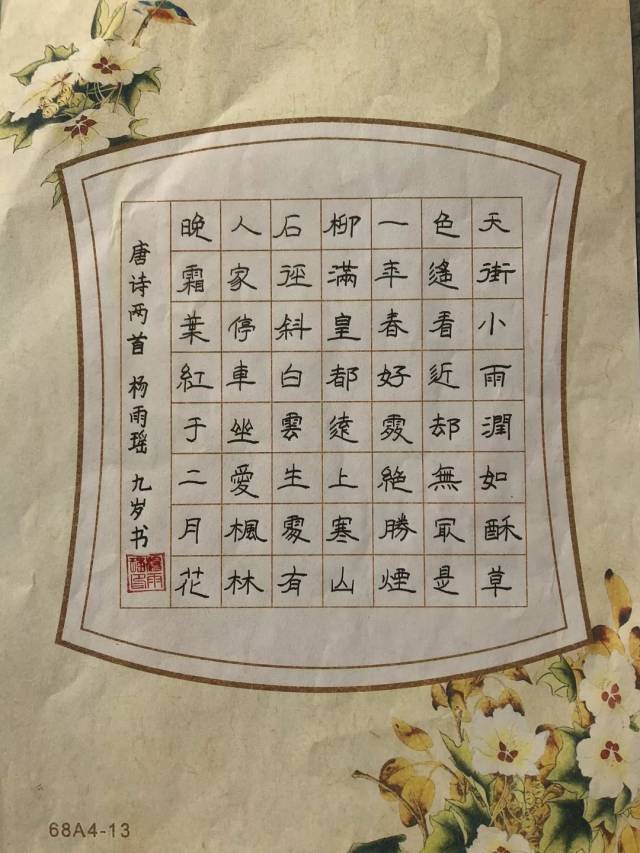 天街小雨潤如酥草
色遙看近却無冣是
一年春好處絶勝煙
柳滿皇都遠上寒山
石徑斜白雲生處有
人家停車坐愛楓林
晚霜葉紅于二月花
唐诗两首 杨雨瑶 九岁书
68A4-13